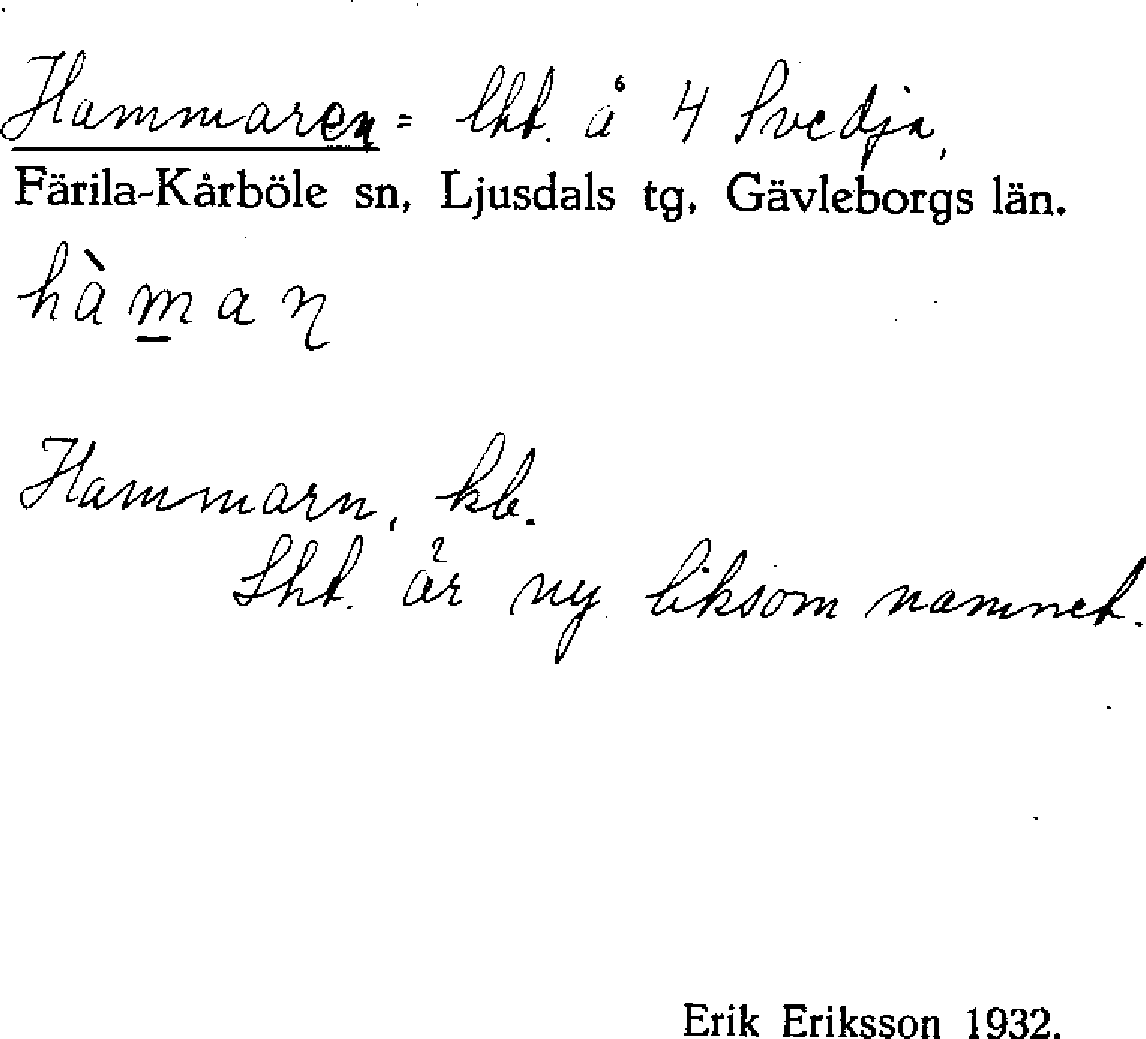 Hammaren = lht. å 4 Svedja,
Färila-Kårböle sn, Ljusdals tg, Gävleborgs län.
hàmaɳ
Hammarn, kb.
Lht. är ny liksom namnet.
Erik Eriksson 1932.